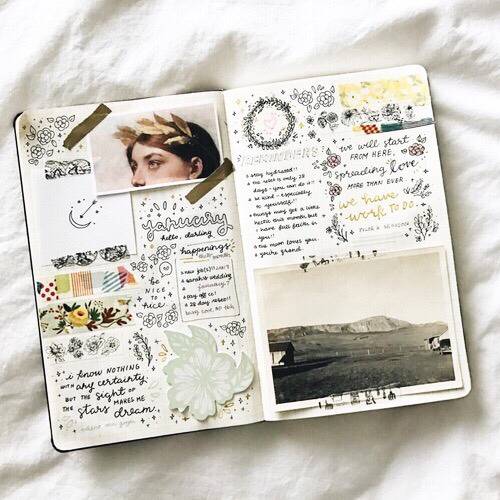 january
hello, darling
happenings
this month
new job(s)!!
sarah's wedding
pay off cc!
28 day reset!!
be
NICE
TO
nice
i know NOTHING
WITH any certainty,
BUT THE SIGHT OF
THE STARS MAKES ME
dream.
REMINDERS
stay hydrated!!
the reset is only 28
days - you can do it!!
be kind - especially
to yourself!!
things may get a little
hectic this month but
i have full faith in
you!!
the moon loves you.
you're grand.
we will start
FROM HERE,
spreading love
MORE THAN EVER.
we have
work TO DO.